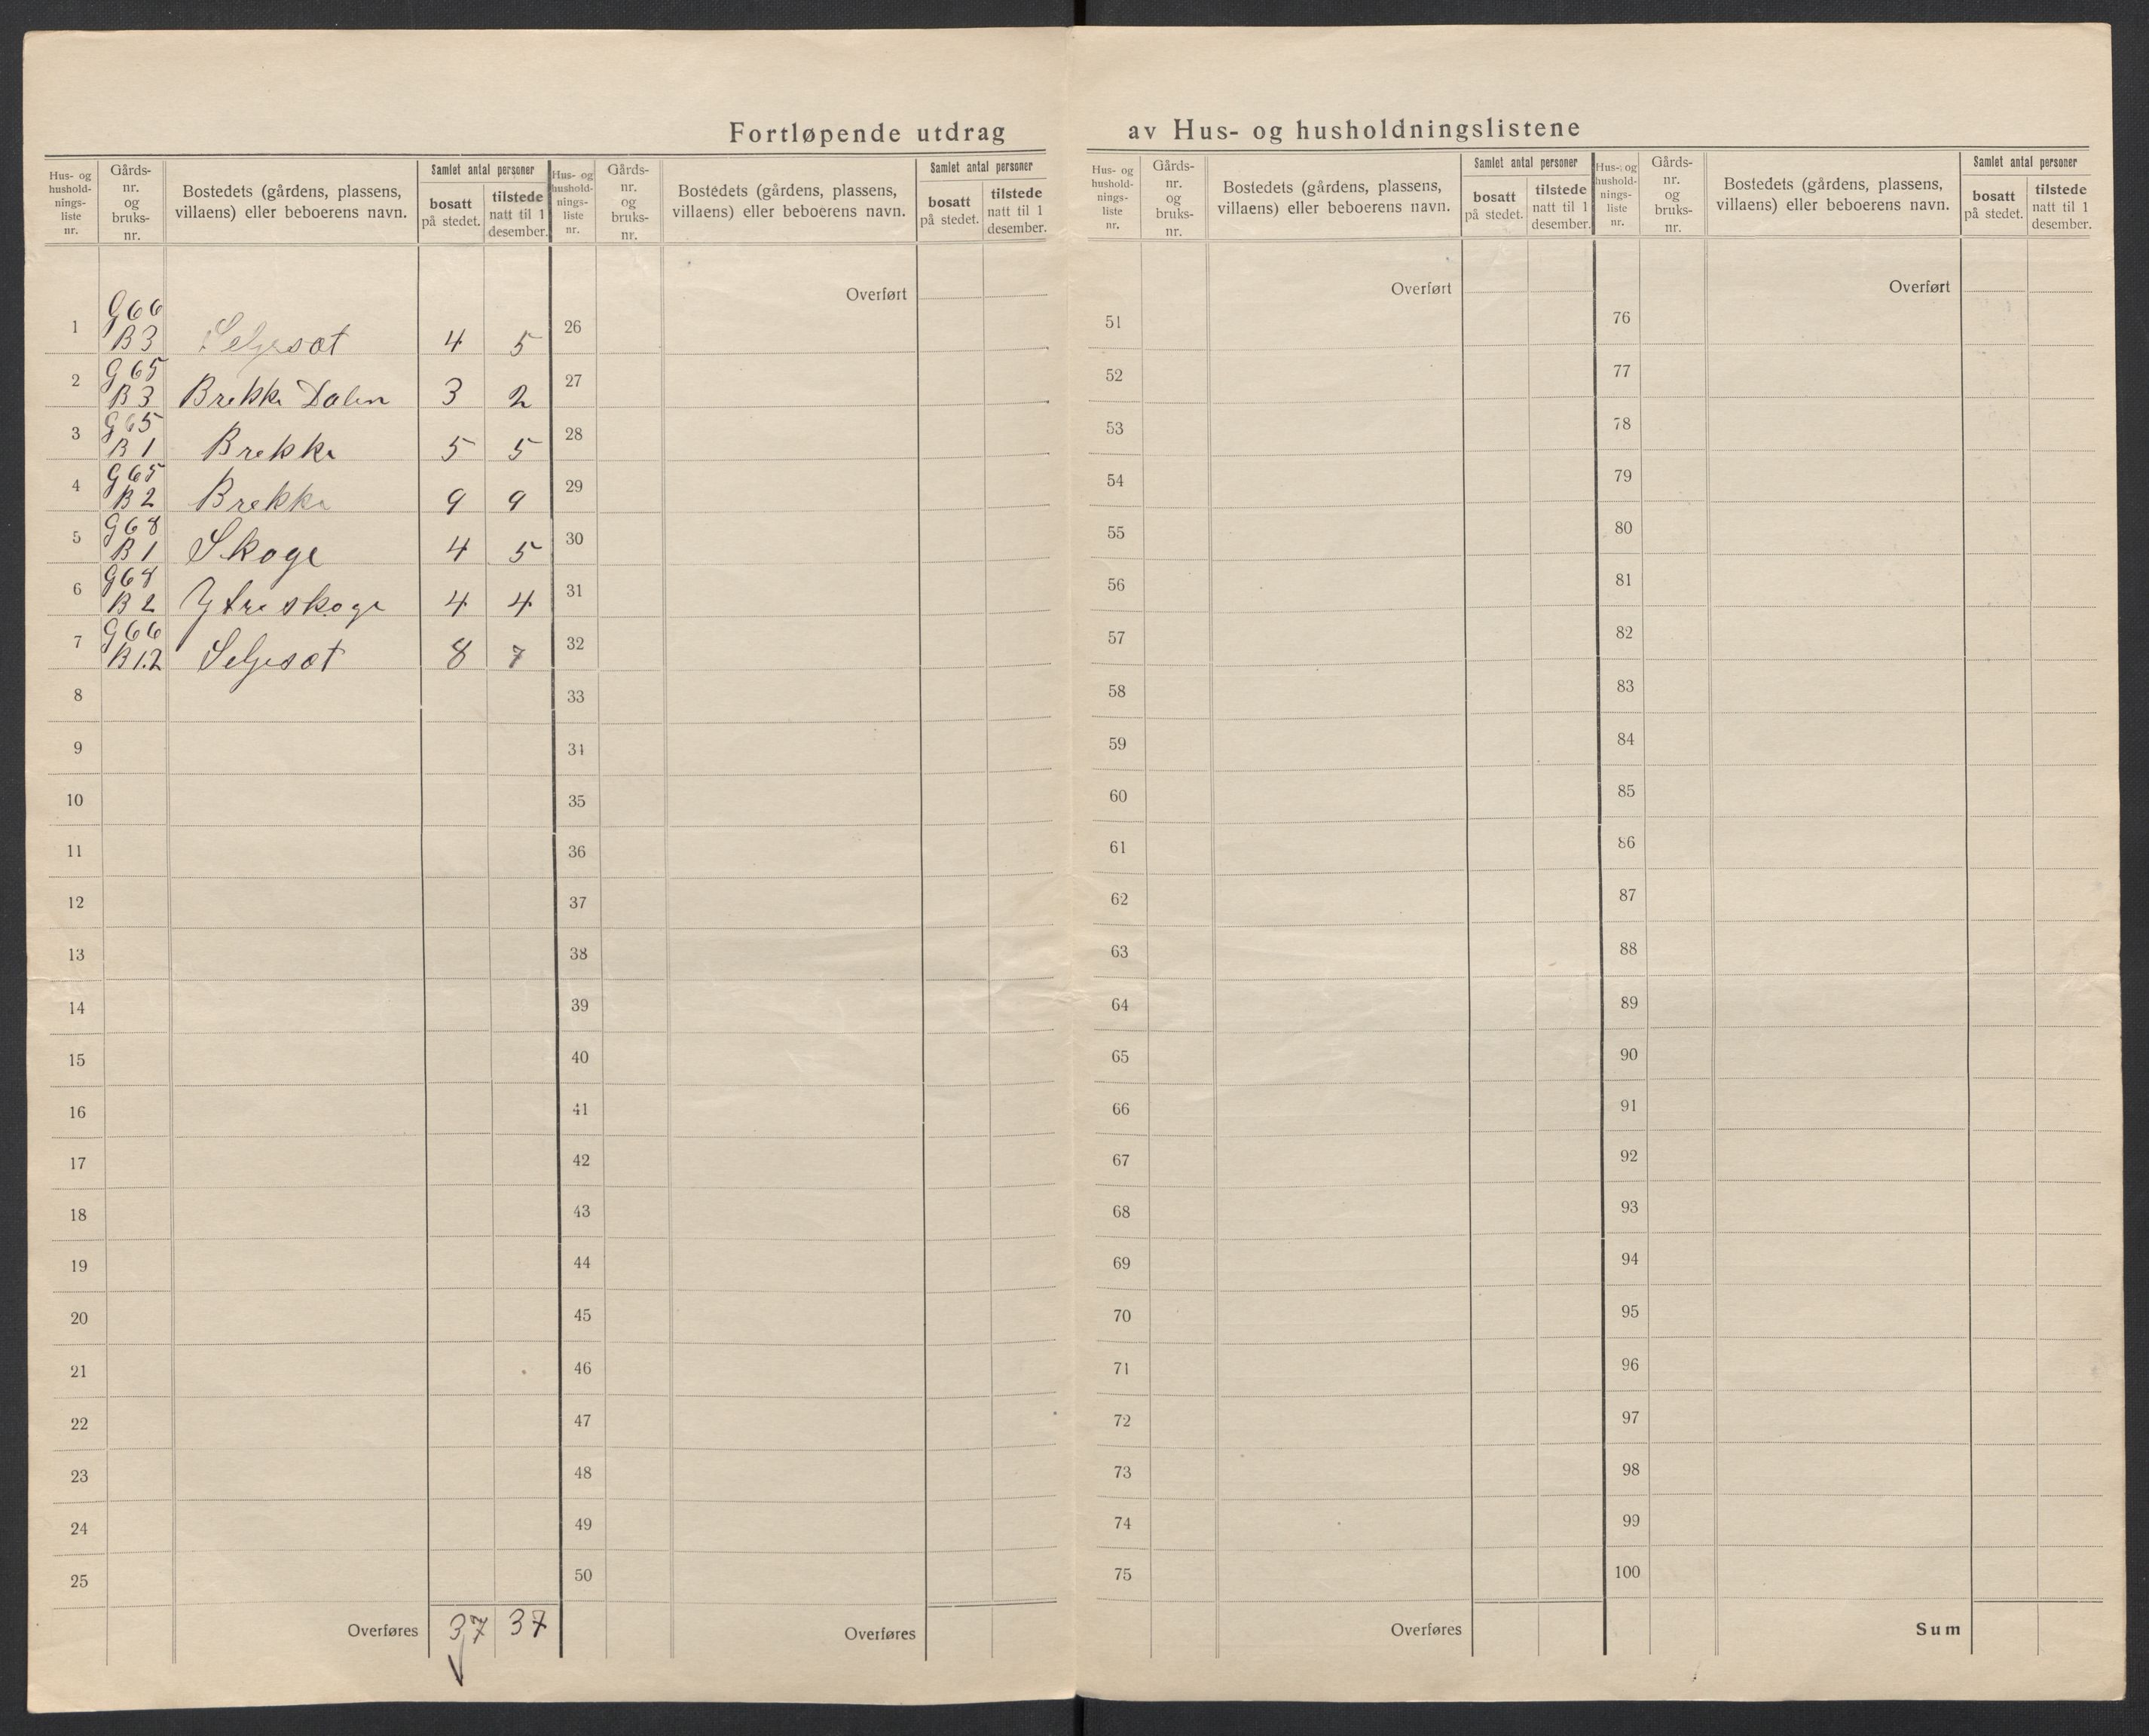 Fortløpende utdrag av Hus- og husholdningslistene
Hus- og
hushold-
nings-
liste
nr.
Gårds-
nr.
og
bruks-
nr.
Bostedets (gårdens, plassens,
villaens) eller beboerens navn.
Samlet antal personer
bosatt
på stedet.
tilstede
natt til 1
desember.
1 G66 B3 Seljesæt 4 5
2 G65 B3 Brekke Dalen 3 2
3 G65 B1 Brekke 5 5
4 G65 B2 Brekke 9 9
5 G68 B1 Skoge 4 5
6 G68 B2 Ytre skoge 4 4
7 G66 B1.2 Seljesæt 8 7
8
9
10
11
12
13
14
15
16
17
18
19
20
21
22
23
24
25
Overføres 37 37
Hus- og
hushold-
nings-
liste
nr.
Gårds-
nr.
og
bruks-
nr.
Bostedets (gårdens, plassens,
villaens) eller beboerens navn.
Samlet antal personer
bosatt
på stedet.
tilstede
natt til 1
desember.
Overført
26
27
28
29
30
31
32
33
34
35
36
37
38
39
40
41
42
43
44
45
46
47
48
49
50
Overføres
Hus- og
hushold-
nings-
liste
nr.
Gårds-
nr.
og
bruks-
nr.
Bostedets (gårdens, plassens,
villaens) eller beboerens navn.
Samlet antal personer
bosatt
på stedet.
tilstede
natt til 1
desember.
Overført
51
52
53
54
55
56
57
58
59
60
61
62
63
64
65
66
67
68
69
70
71
72
73
74
75
Overføres
Hus- og
hushold-
nings-
liste
nr.
Gårds-
nr.
og
bruks-
nr.
Bostedets (gårdens, plassens,
villaens) eller beboerens navn.
Samlet antal personer
bosatt
på stedet.
tilstede
natt til 1
desember.
Overført
76
77
78
79
80
81
82
83
84
85
86
87
88
89
90
91
92
93
94
95
96
97
98
99
100
Sum